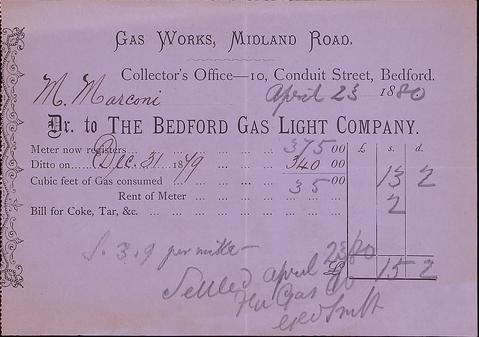 GAS WORKS, MIDLAND ROAD.
COLLECTOR'S OFFICE—10, CONDUIT STREET, BEDFORD.
M. Marconi April 23 1880
Dr. to THE BEDFORD GAS LIGHT COMPANY.
Meter now registers 375 00 £ s. d.
Ditto on Dec. 31 1879 340 00
Cubic feet of Gas consumed 35 00 13 2
Rent of Meter 2
Bill for Coke, Tar, &c.
3.9 per mille — £ 15 2
Settled April 23/80
For Gas Co
Geo Smith